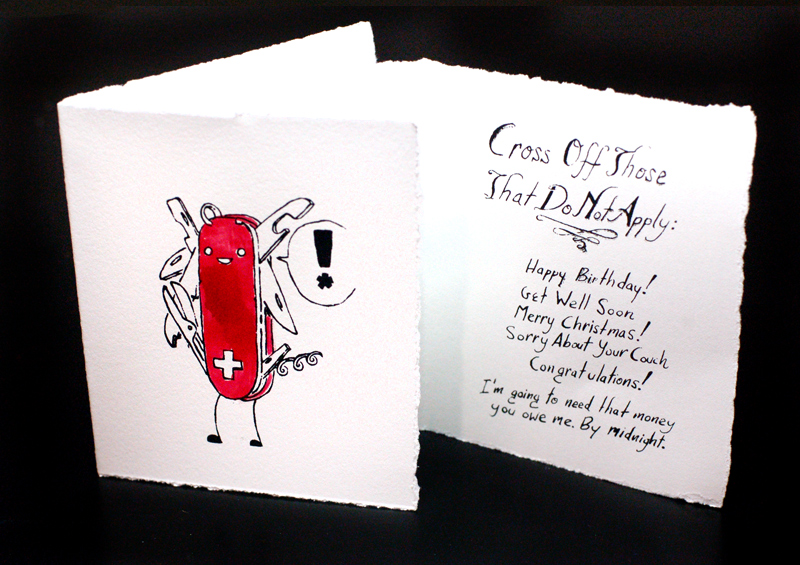 !
*
Cross Off Those
That Do Not Apply:
Happy Birthday!
Get Well Soon
Merry Christmas!
Sorry About Your Couch
Congratulations!
I'm going to need that money
you owe me. By midnight.